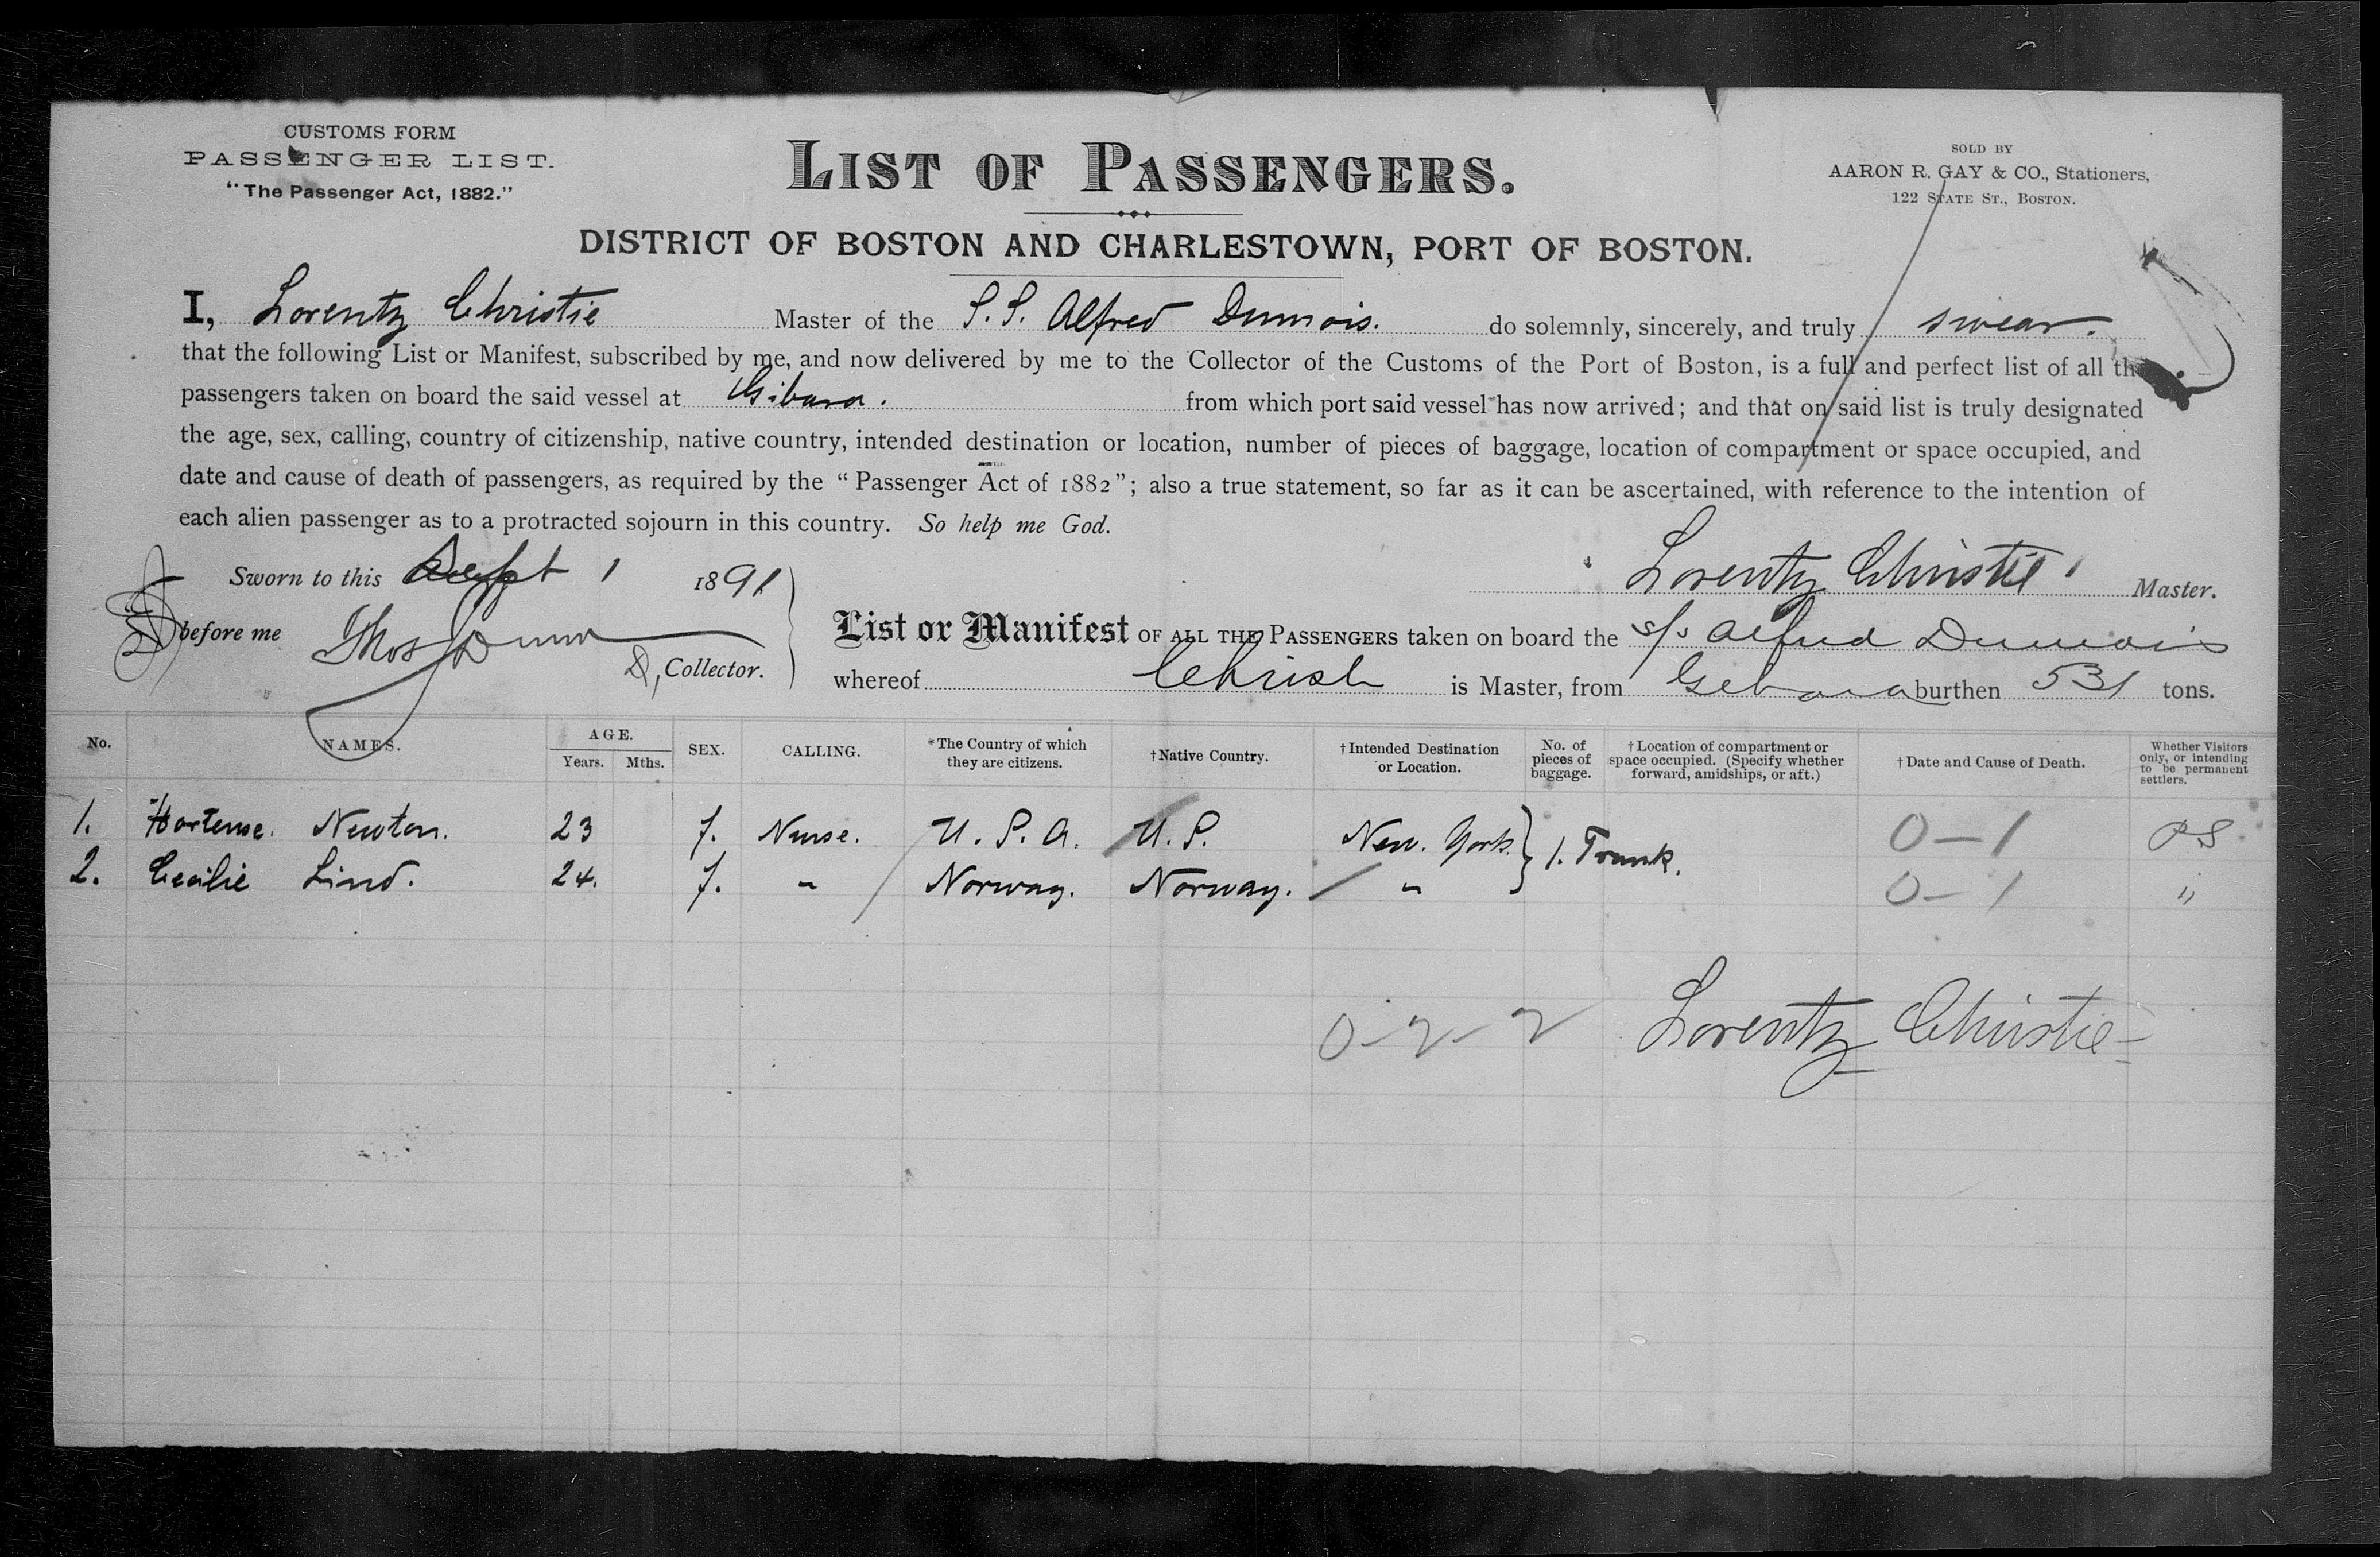 CUSTOMS FORM
PASSENGER LIST.
"The Passenger Act, 1882."
LIST OF PASSENGERS.
SOLD BY
AARON R. GAY & CO., Stationers,
122 STATE ST., BOSTON.
DISTRICT OF BOSTON AND CHARLESTOWN, PORT OF BOSTON.
I, Lorentz Christie Master of the S.S. Alfred Dumois. do solemnly, sincerely, and truly swear.
that the following List or Manifest, subscribed by me, and now delivered by me to the Collector of the Customs of the Port of Boston, is a full and perfect list of all the
passengers taken on board the said vessel at Gibara. from which port said vessel has now arrived; and that on said list is truly designated
the age, sex, calling, country of citizenship, native country, intended destination or location, number of pieces of baggage, location of compartment or space occupied, and
date and cause of death of passengers, as required by the "Passenger Act of 1882"; also a true statement, so far as it can be ascertained, with reference to the intention of
each alien passenger as to a protracted sojourn in this country. So help me God.
Sworn to this Sept 1 1891
Lorentz Christie Master.
before me Thos
D, Collector.
List or Manifest OF ALL THE PASSENGERS taken on board the s/s Alfred Dumois
whereof Christi is Master, from Gebara burthen 531 tons.
No. NAMES. AGE. Years. Mths. SEX. CALLING. *The Country of which they are citizens. †Native Country. †Intended Destination or Location. No. of pieces of baggage. †Location of compartment or space occupied. (Specify whether forward, amidships, or aft.) †Date and Cause of Death. Whether Visitors only, or intending to be permanent settlers.
1. Hortense. Newton. 23 f. Nurse. U.S.A. U.S. New. York. } 1. Trunk. 0-1 PS
2. Cecilie Lind. 24. f. " Norway. Norway. " 0-1 "
0-2-2 Lorentz Christie